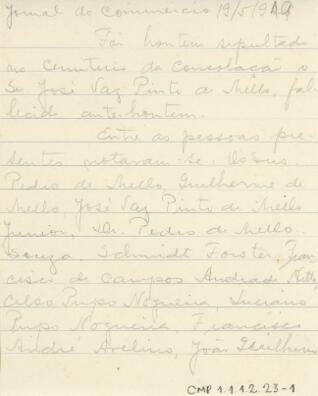 Jornal do Commercio 19/5/919
Foi hontem sepultado
no Cemiterio da Consolação o
Sr José Vaz Pinto de Mello, fal-
lecido ante-hontem.
Entre as pessoas pre-
sentes notaram-se Os Srs.
Pedro de Mello, Guilherme de
Mello, José Vaz Pinto de Mello
Junior, Dr. Pedro de Mello
Souza, Schmidt Forster, Fran-
cisco de Campos Andrad
Celso Pupo Nogueira, Luciano
Pupo Nogueira, Francisco
André Avelino, João Guilherme
CMP 1.1.1.2.23-1